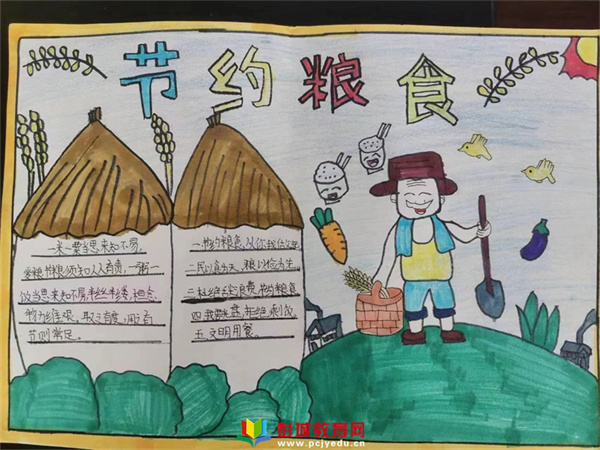 节约粮食
一米一粟当思来知不易,
爱粮节粮须知人人有责,一粥一
饭当思来知不易,
物力维艰。取之有度,用之有
节则常足。
一.节约粮食,从你我他做起
二.民以食为天,粮以俭为生。
三.杜绝舌尖浪费,节约粮食
四.拒绝剩饭
五.文明用餐。
创诚教育网
www.pcjyedu.cn